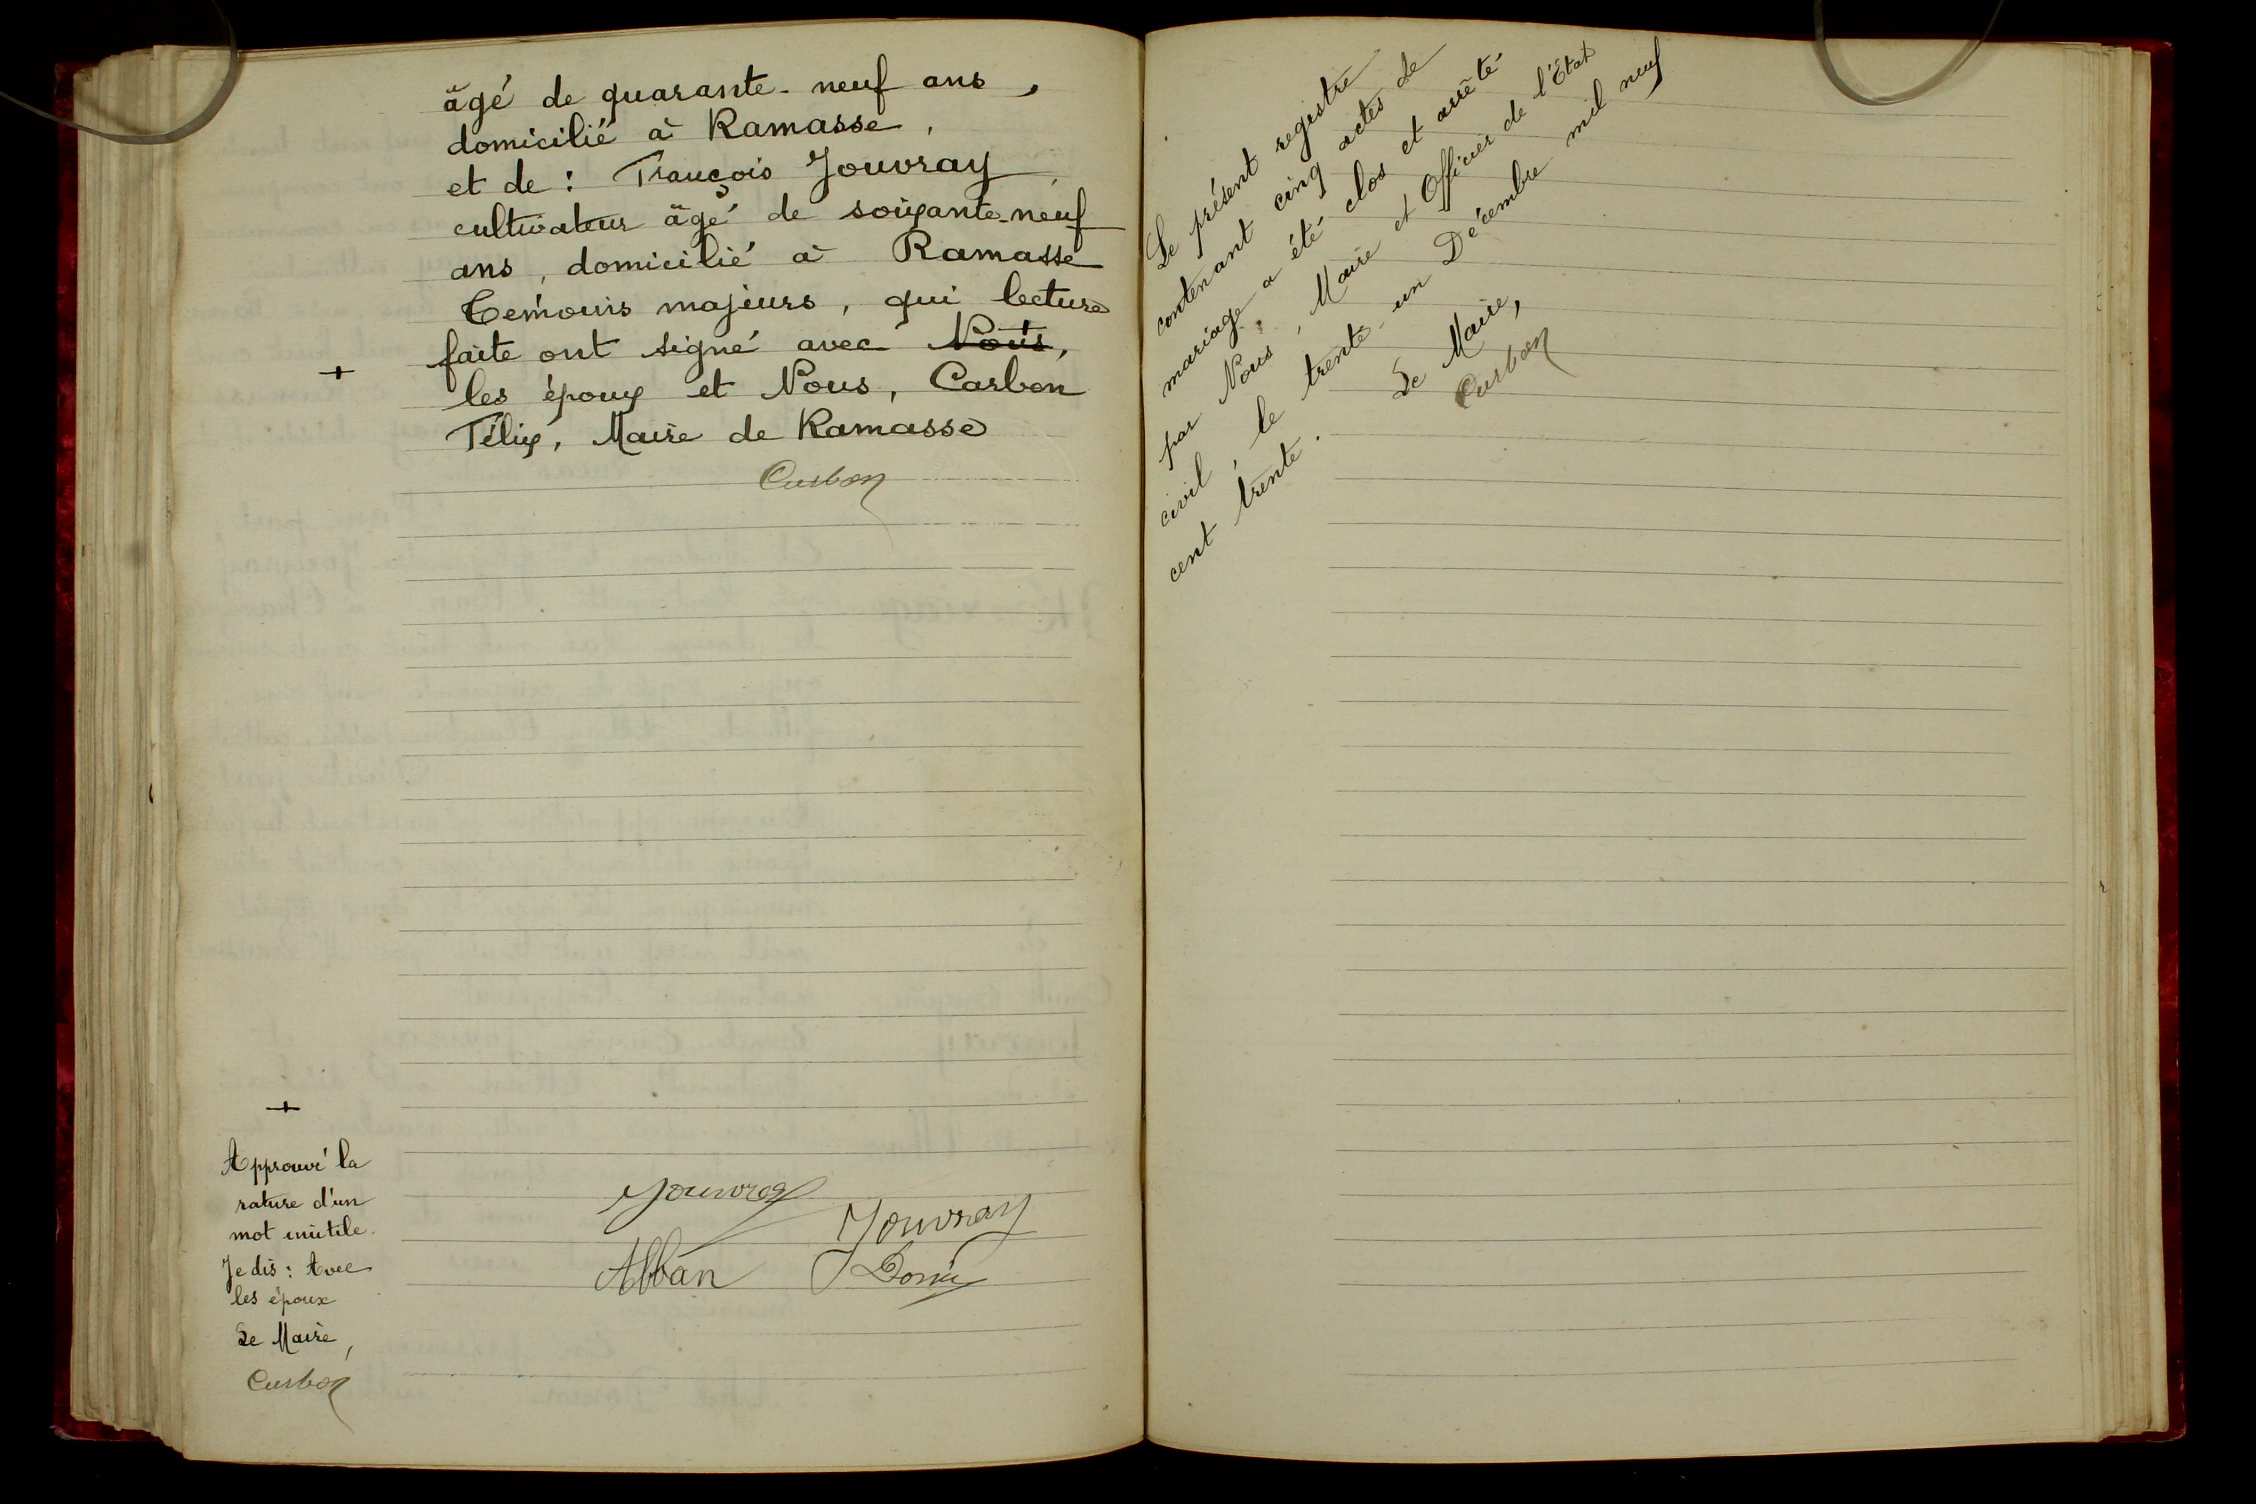 âgé de quarante-neuf ans,
domicilié à Ramasse,
et de : François Jouvray
cultivateur âgé de soixante-neuf
ans, domicilié à Ramasse
Témoins majeurs, qui lecture
faite ont signé avec Nous,
+
les époux et Nous, Carbon
Félix, Maire de Ramasse
Curbon
+
Approuvé la
rature d'un
mot inutile.
Je dis : Avec
les époux
Le Maire,
Curbon
Jouvray
Jouvray
Alban
Le présent registre
contenant cinq actes de
mariage a été clos et arrêté
par Nous, Maire et Officier de l'Etat
civil, le trente-un Décembre mil neuf
cent trente.
Le Maire,
Curbon